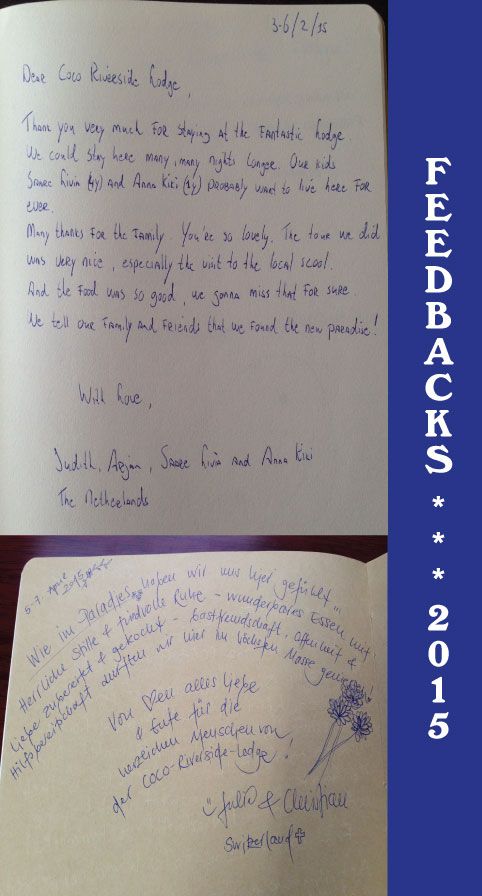 3-6/2/15
Dear Coco Riverside Lodge,
Thank you very much for staying at the fantastic lodge.
We could stay here many, many nights longer. Our kids
Livia (4y) and Anna Kiki (1y) probably want to live here for
ever.
Many thanks for the family. You're so lovely. The tour we did
was very nice, especially the visit to the local scool.
And the food was so good, we gonna miss that for sure.
We tell our family and friends that we found the new paradise!
With love,
Judith, Arjan, Livia and Anna Kiki
The Netherlands
FEEDBACKS * * * 2015
5.-7. April 2015
Wie im Paradies haben wir uns hier gefühlt...
Herrliche Stille & Ruhe - wunderbares Essen mit
Liebe zubereitet & gekocht - Gastfreundschaft, Offenheit &
Hilfsbereitschaft durften wir hier im höchsten Masse geniessen!
Von ♡en alles Liebe
& Gute für die
herzlichen Menschen von
der Coco-Riverside-Lodge!
Julia & Christian
Switzerland